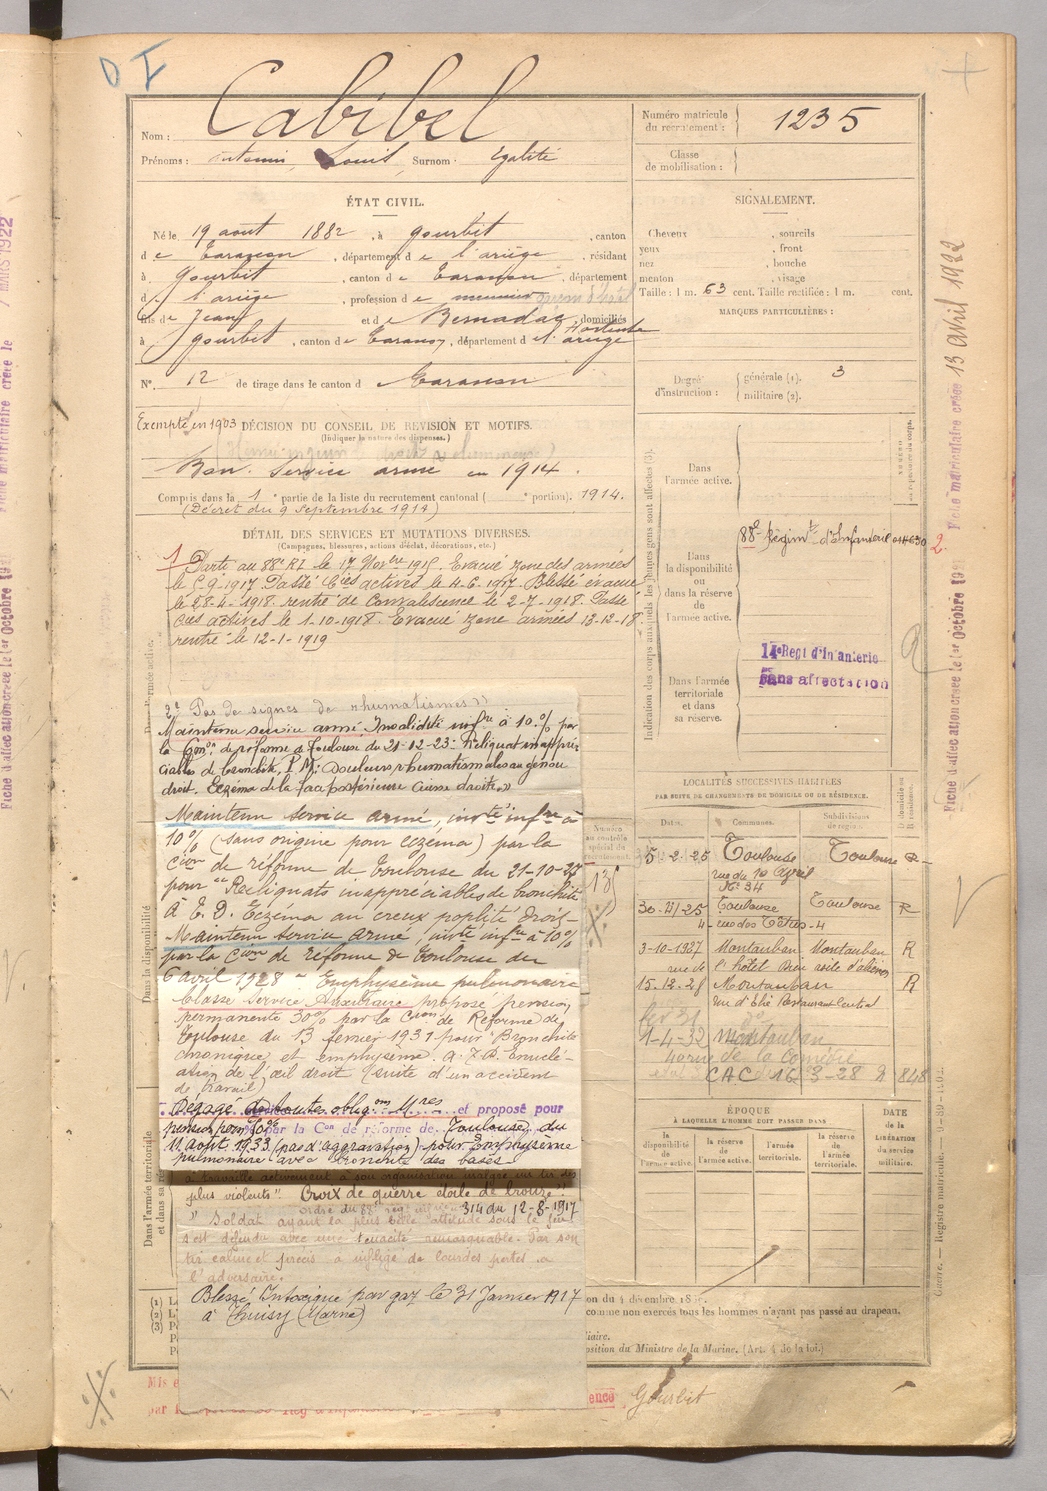 D I
Cabibel
Nom :
Prénoms : Antonin, Louis, Surnom : Egalité
Numéro matricule du recrutement : 1235
Classe de mobilisation :
ÉTAT CIVIL.
Né le 19 août 1882, à Gourbit, canton
de Tarascon, département de l'ariège, résidant
à Gourbit, canton de Tarascon, département
d l'ariège, profession de meunier garçon d'hôtel
fils de Jean et de Bernadac Hortense, domiciliés
à Gourbit, canton de Tarascon, département d l'ariège
N° 12 de tirage dans le canton d Tarascon
SIGNALEMENT.
Cheveux , sourcils
yeux , front
nez , bouche
menton , visage
Taille : 1 m. 63 cent. Taille rectifiée : 1 m. cent.
MARQUES PARTICULIÈRES :
Degré d'instruction : générale (1). 3
militaire (2).
Exempté en 1903
DÉCISION DU CONSEIL DE REVISION ET MOTIFS.
(Indiquer la nature des dispenses.)
Bon. Service armé en 1914.
Compris dans la 1e partie de la liste du recrutement cantonal ( e portion). 1914.
(Décret du 9 septembre 1914)
DÉTAIL DES SERVICES ET MUTATIONS DIVERSES.
(Campagnes, blessures, actions d'éclat, décorations, etc.)
1 Parti au 88e RI le 17 Novbre 1915. Evacué zone des armées
le 6-9-1917. Passé Cies actives le 4-6-1917. Blessé évacué
le 28-4-1918. rentré de Convalescence le 2-7-1918. Passé
Cies actives le 1-10-1918. Evacué zone armées 13-12-18.
rentré le 12-1-1919
2° Pas de signes de rhumatismes »
Maintenu service armé. Invalidité infre à 10% par
la Comon de réforme de Toulouse du 21-12-23: Reliquat inappré-
ciables de bronchite. P.M: Douleurs rhumatismales au genou
droit. Eczéma de la face postérieure cuisse droite. »
Maintenu service armé, invté infre à
10% (sans origine pour eczéma) par la
Cion de réforme de Toulouse du 21-10-27
pour "Reliquats inappréciables de bronchite
A.E.D. Eczéma au creux poplité droit-
Maintenu service armé, invté infre à 10%
par la Cion de réforme de Toulouse du
6 avril 1928 " Emphysème pulmonaire
Classé Service Auxiliaire proposé pension
permanente 30% par la Cion de Réforme de
Toulouse du 13 février 1931 pour "Bronchite
chronique et emphysème. A.T.P. Enuclé-
ation de l'œil droit (suite d'un accident
de travail)
Dégagé de toutes obligons Mres et proposé pour
par la Con de réforme de Toulouse du
11 août 1933 (pas d'aggravation) pour Emphysème
pulmonaire avec bronchite des bases
a travaillé activement à son organisation malgré un tir des
plus violents". Croix de guerre étoile de bronze".
314 du 12-8-1917
" Soldat ayant la plus belle attitude sous le feu
s'est défendu avec une tenacité remarquable. Par son
tir calme et précis a infligé de lourdes pertes à
l'adversaire.
Blessé Intoxiqué par gaz le 31 Janvier 1917
à Thuisy (Marne)
Indication des corps auxquels les jeunes gens sont affectés (3).
Dans l'armée active.
Dans la disponibilité ou dans la réserve de l'armée active.
88e Régimt d'Infanterie
Dans l'armée territoriale et dans sa réserve.
14e Regt d'Infanterie
Sans affectation
LOCALITÉS SUCCESSIVES HABITÉES
PAR SUITE DE CHANGEMENTS DE DOMICILE OU DE RÉSIDENCE.
Dates. Communes. Subdivisions de région. D. domicile ou R. résidence.
5-2-25 Toulouse Toulouse R
rue du 10 Avril
N° 34
30-11-25 Toulouse Toulouse R
3-10-1927 Montauban Montauban R
rue de l'hôtel Dieu asile d'aliénés
15-12-28 Montauban R
1-4-32 Montauban
40 rue de la Comédie
CAC 16-3-28 848
ÉPOQUE
À LAQUELLE L'HOMME DOIT PASSER DANS
la disponibilité de l'armée active.
la réserve de l'armée active.
l'armée territoriale.
la réserve de l'armée territoriale.
DATE DE LA LIBÉRATION du service militaire.
Numéro au contrôle spécial du recrutement.
Dans la disponibilité
Guerre. — Registre matricule.
comme non exercés tous les hommes n'ayant pas passé au drapeau.
position du Ministre de la Marine. (Art. 4 de la loi.)
Gourbit
Fiche matriculaire créée 13 Avril 1922
Fiche d'affectation créée le 1er Octobre
Fiche matriculaire créée le 7 MARS 1922